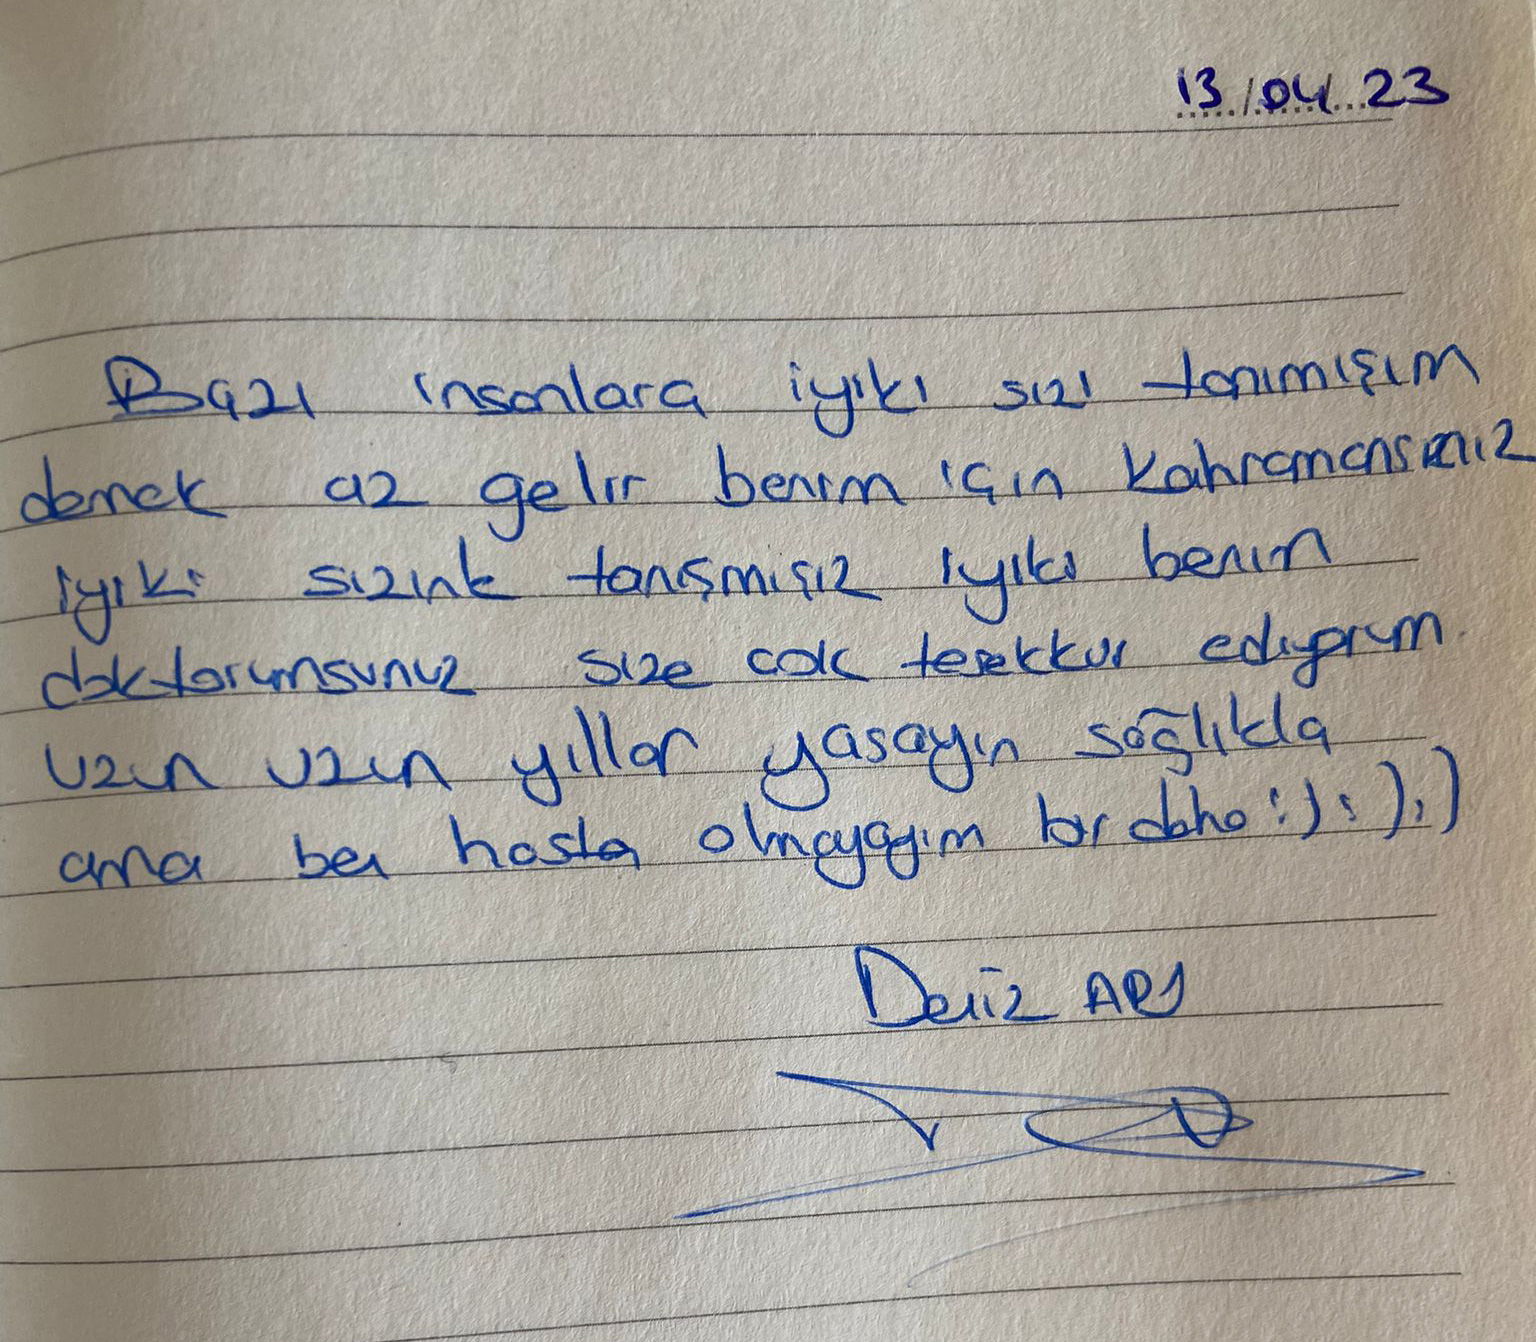 13/04/23
Bazı insanlara iyiki sizi tanımışım
demek az gelir benim için kahramansınız
iyiki sizink tanışmışız iyiki benim
doktorumsunuz size cok tesekkur ediyorum.
uzun uzun yıllar yasayın sağlıkla
ama ben hasta olmayayım bir daha :) :) :)
Deniz